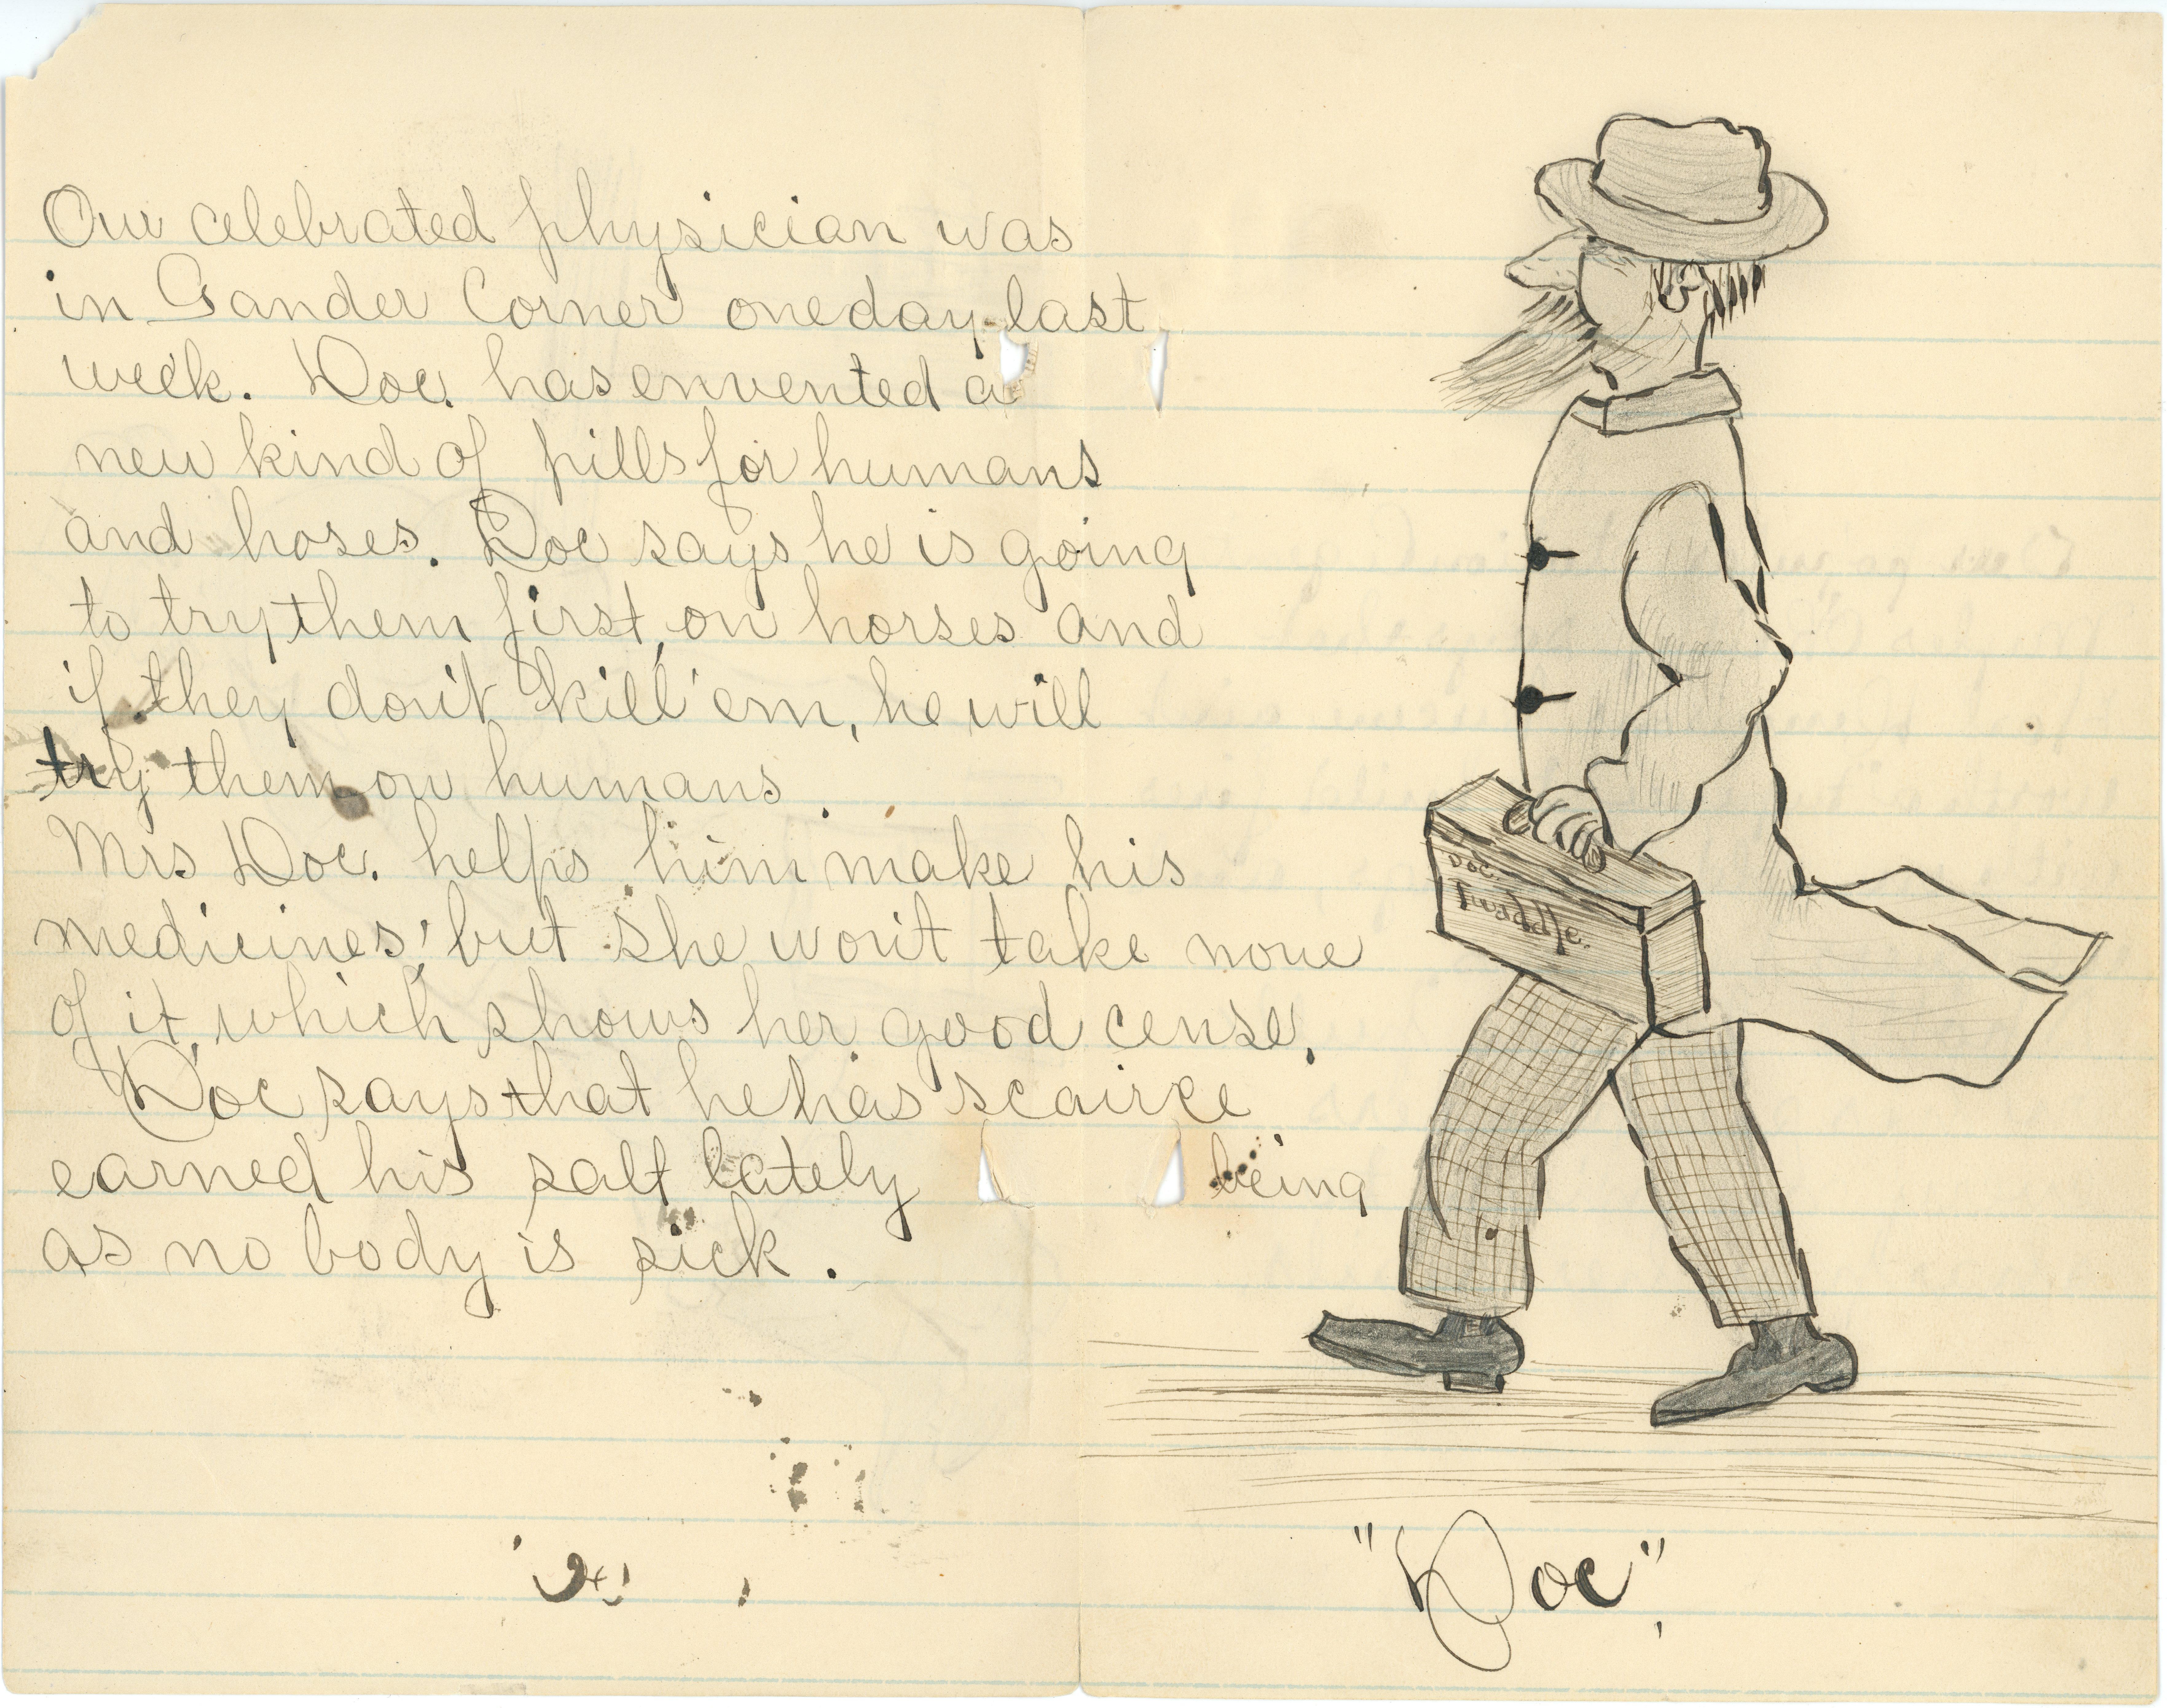 Our celebrated physician was
in Gander Corner one day last
week. Doc. has envented a
new kind of pills for humans
and hoses. Doc says he is going
to try them first, on horses and
if they don't kill 'em, he will
try them on humans.
Mrs Doc. helps him make his
medicines, but she won't take none
of it, which shows her good cense.
Doc says that he has scairce
earned his salt lately being
as no body is sick.
Doc.
Twaddle.
"Doc".